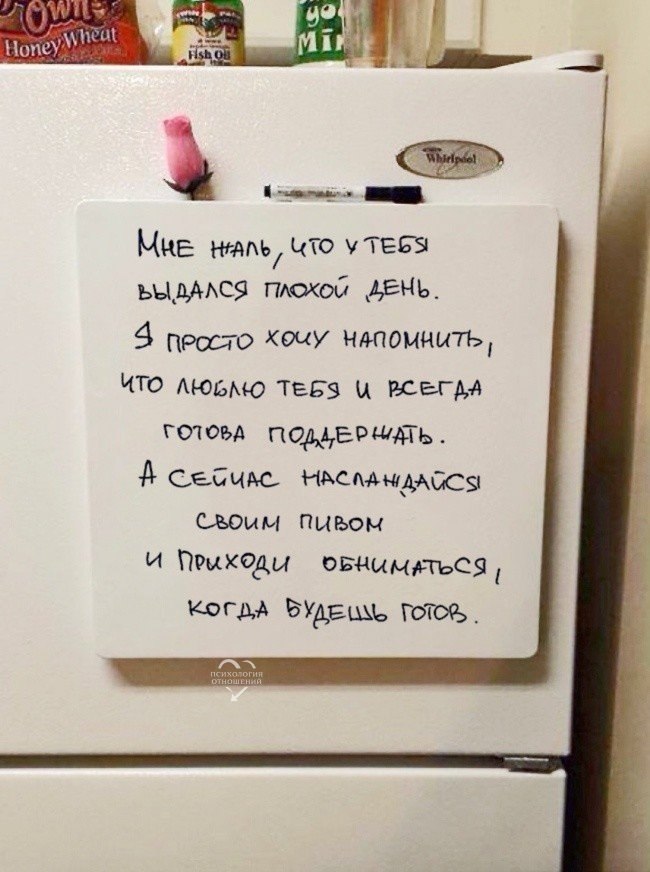 Own
Honey Wheat
TWIN LAB
Fish Oil
yo
Mi
Whirlpool
Мне жаль, что у тебя
выдался плохой день.
Я просто хочу напомнить,
что люблю тебя и всегда
готова поддержать.
А сейчас наслаждайся
своим пивом
и приходи обниматься,
когда будешь готов.
ПСИХОЛОГИЯ
ОТНОШЕНИЙ